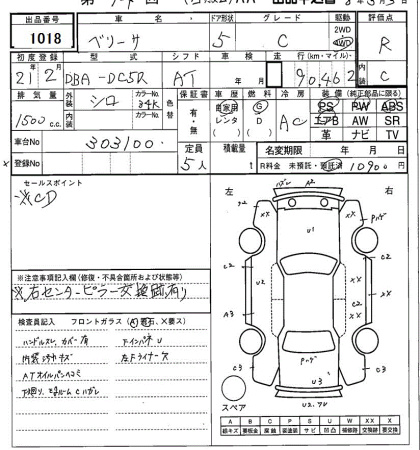 出品番号 車名 ドア形状 グレード 駆動 評価点
1018 ベリーサ 5 C 2WD 4WD R
初度登録 型式 シフト 車検 走行(km・マイル) 内装
21/2 DBA-DC5R AT 年 月 90,462 C
排気量 外装色 カラーNo. 色替 保証書 車歴 燃料 冷房 装備(純正部品に限る)
1500c.c. シロ 34K 有・無 自家用 レンタ G D AC PS PW ABS
エアB AW SR
革 ナビ TV
車台No 303100
定員 5人 積載量 t
名変期限 年 月 日
登録No R料金 未預託・預託済 10900円
セールスポイント
※CD
左 右
※注意事項記入欄(修復・不具合箇所および状態等)
※右センターピラー交換跡有り
検査員記入 フロントガラス(A、飛石、X要ス)
ハンドルスレ カバー有 下インパネU
内袋シタキズ 左Fライナー欠
ATオイルパンAコミ
下廻り、ごまルームCハガレ
ハズレ A2
U1
XX XX
Pハゲ
C2 C2
U2 XX XX
A3 C2
Pハゲ
C3 U3 C3
スペア
A B C P S U W X XX
線キズ 要板金 腐蝕 要塗装 サビ 凹凸 補修跡 要交換 交換跡